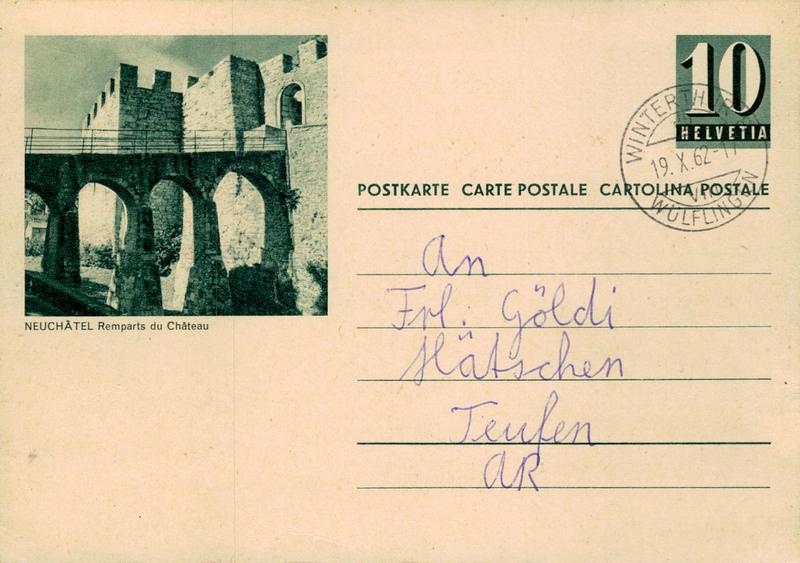 10
HELVETIA
WINTERTHUR
19. X. 62-17
WÜLFLINGEN
POSTKARTE CARTE POSTALE CARTOLINA POSTALE
NEUCHÂTEL Remparts du Château
An
Frl. Göldi
Hätschen
Teufen
AR